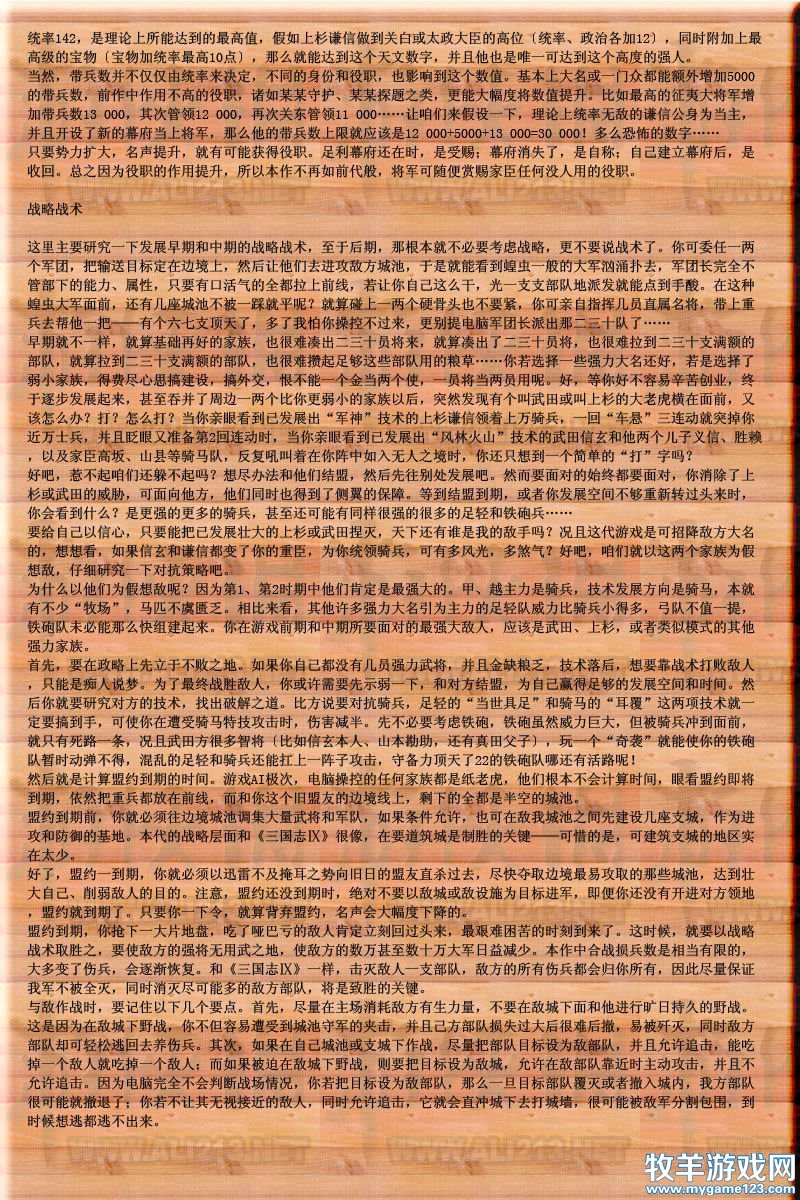 统率142，是理论上所能达到的最高值，假如上杉谦信做到关白或太政大臣的高位〔统率、政治各加12〕，同时附加上最
高级的宝物〔宝物加统率最高10点〕，那么就能达到这个天文数字，并且他也是唯一可达到这个高度的强人。
当然，带兵数并不仅仅由统率来决定，不同的身份和役职，也影响到这个数值。基本上大名或一门众都能额外增加5000
的带兵数，前作中作用不高的役职，诸如某某守护、某某探题之类，更能大幅度将数值提升。比如最高的征夷大将军增
加带兵数13 000，其次管领12 000，再次关东管领11 000……让咱们来假设一下，理论上统率无敌的谦信公身为当主，
并且开设了新的幕府当上将军，那么他的带兵数上限就应该是12 000+5000+13 000=30 000！多么恐怖的数字……
只要势力扩大，名声提升，就有可能获得役职。足利幕府还在时，是受赐；幕府消失了，是自称；自己建立幕府后，是
收回。总之因为役职的作用提升，所以本作不再如前代般，将军可随便赏赐家臣任何没人用的役职。
战略战术
这里主要研究一下发展早期和中期的战略战术，至于后期，那根本就不必要考虑战略，更不要说战术了。你可委任一两
个军团，把输送目标定在边境上，然后让他们去进攻敌方城池，于是就能看到蝗虫一般的大军汹涌扑去，军团长完全不
管部下的能力、属性，只要有口活气的全都拉上前线，若让你自己这么干，光一支支部队地派发就能点到手酸。在这种
蝗虫大军面前，还有几座城池不被一踩就平呢？就算碰上一两个硬骨头也不要紧，你可亲自指挥几员直属名将，带上重
兵去帮他一把——有个六七支顶天了，多了我怕你操控不过来，更别提电脑军团长派出那二三十队了……
早期就不一样，就算基础再好的家族，也很难凑出二三十员将来，就算凑出了二三十员将，也很难拉到二三十支满额的
部队，就算拉到二三十支满额的部队，也很难攒起足够这些部队用的粮草……你若选择一些强力大名还好，若是选择了
弱小家族，得费尽心思搞建设，搞外交，恨不能一个金当两个使，一员将当两员用呢。好，等你好不容易辛苦创业，终
于逐步发展起来，甚至吞并了周边一两个比你更弱小的家族以后，突然发现有个叫武田或叫上杉的大老虎横在面前，又
该怎么办？打？怎么打？当你亲眼看到已发展出“军神”技术的上杉谦信领着上万骑兵，一回“车悬”三连动就突掉你
近万士兵，并且眨眼又准备第2回连动时，当你亲眼看到已发展出“风林火山”技术的武田信玄和他两个儿子义信、胜赖
，以及家臣高坂、山县等骑马队，反复吼叫着在你阵中如入无人之境时，你还只想到一个简单的“打”字吗？
好吧，惹不起咱们还躲不起吗？想尽办法和他们结盟，然后先往别处发展吧。然而要面对的始终都要面对，你消除了上
杉或武田的威胁，可面向他方，他们同时也得到了侧翼的保障。等到结盟到期，或者你发展空间不够重新转过头来时，
你会看到什么？是更强的更多的骑兵，甚至还可能有同样很强的很多的足轻和铁炮兵……
要给自己以信心，只要能把已发展壮大的上杉或武田捏灭，天下还有谁是我的敌手吗？况且这代游戏是可招降敌方大名
的，想想看，如果信玄和谦信都变了你的重臣，为你统领骑兵，可有多风光，多煞气？好吧，咱们就以这两个家族为假
想敌，仔细研究一下对抗策略吧。
为什么以他们为假想敌呢？因为第1、第2时期中他们肯定是最强大的。甲、越主力是骑兵，技术发展方向是骑马，本就
有不少“牧场”，马匹不虞匮乏。相比来看，其他许多强力大名引为主力的足轻队威力比骑兵小得多，弓队不值一提，
铁炮队未必能那么快组建起来。你在游戏前期和中期所要面对的最强大敌人，应该是武田、上杉，或者类似模式的其他
强力家族。
首先，要在政略上先立于不败之地。如果你自己都没有几员强力武将，并且金缺粮乏，技术落后，想要靠战术打败敌人
，只能是痴人说梦。为了最终战胜敌人，你或许需要先示弱一下，和对方结盟，为自己赢得足够的发展空间和时间。然
后你就要研究对方的技术，找出破解之道。比方说要对抗骑兵，足轻的“当世具足”和骑马的“耳覆”这两项技术就一
定要搞到手，可使你在遭受骑马特技攻击时，伤害减半。先不必要考虑铁炮，铁炮虽然威力巨大，但被骑兵冲到面前，
就只有死路一条，况且武田方很多智将〔比如信玄本人、山本勘助，还有真田父子〕，玩一个“奇袭”就能使你的铁炮
队暂时动弹不得，混乱的足轻和骑兵还能扛上一阵子攻击，守备力顶天了22的铁炮队哪还有活路呢！
然后就是计算盟约到期的时间。游戏AI极次，电脑操控的任何家族都是纸老虎，他们根本不会计算时间，眼看盟约即将
到期，依然把重兵都放在前线，而和你这个旧盟友的边境线上，剩下的全都是半空的城池。
盟约到期前，你就必须往边境城池调集大量武将和军队，如果条件允许，也可在敌我城池之间先建设几座支城，作为进
攻和防御的基地。本代的战略层面和《三国志Ⅸ》很像，在要道筑城是制胜的关键——可惜的是，可建筑支城的地区实
在太少。
好了，盟约一到期，你就必须以迅雷不及掩耳之势向旧日的盟友直杀过去，尽快夺取边境最易攻取的那些城池，达到壮
大自己、削弱敌人的目的。注意，盟约还没到期时，绝对不要以敌城或敌设施为目标进军，即便你还没有开进对方领地
，盟约就到期了。只要你一下令，就算背弃盟约，名声会大幅度下降的。
盟约到期，你抢下一大片地盘，吃了哑巴亏的敌人肯定立刻回过头来，最艰难困苦的时刻到来了。这时候，就要以战略
战术取胜之，要使敌方的强将无用武之地，使敌方的数万甚至数十万大军日益减少。本作中合战损兵数是相当有限的，
大多变了伤兵，会逐渐恢复。和《三国志Ⅸ》一样，击灭敌人一支部队，敌方的所有伤兵都会归你所有，因此尽量保证
我军不被全灭，同时消灭尽可能多的敌方部队，将是致胜的关键。
与敌作战时，要记住以下几个要点。首先，尽量在主场消耗敌方有生力量，不要在敌城下面和他进行旷日持久的野战。
这是因为在敌城下野战，你不但容易遭受到城池守军的夹击，并且己方部队损失过大后很难后撤，易被歼灭，同时敌方
部队却可轻松逃回去养伤兵。其次，如果在自己城池或支城下作战，尽量把部队目标设为敌部队，并且允许追击，能吃
掉一个敌人就吃掉一个敌人；而如果被迫在敌城下野战，则要把目标设为敌城，允许在敌部队靠近时主动攻击，并且不
允许追击。因为电脑完全不会判断战场情况，你若把目标设为敌部队，那么一旦目标部队覆灭或者撤入城内，我方部队
很可能就撤退了；你若不让其无视接近的敌人，同时允许追击，它就会直冲城下去打城墙，很可能被敌军分割包围，到
时候想逃都逃不出来。
牧羊游戏网
www.mygame123.com